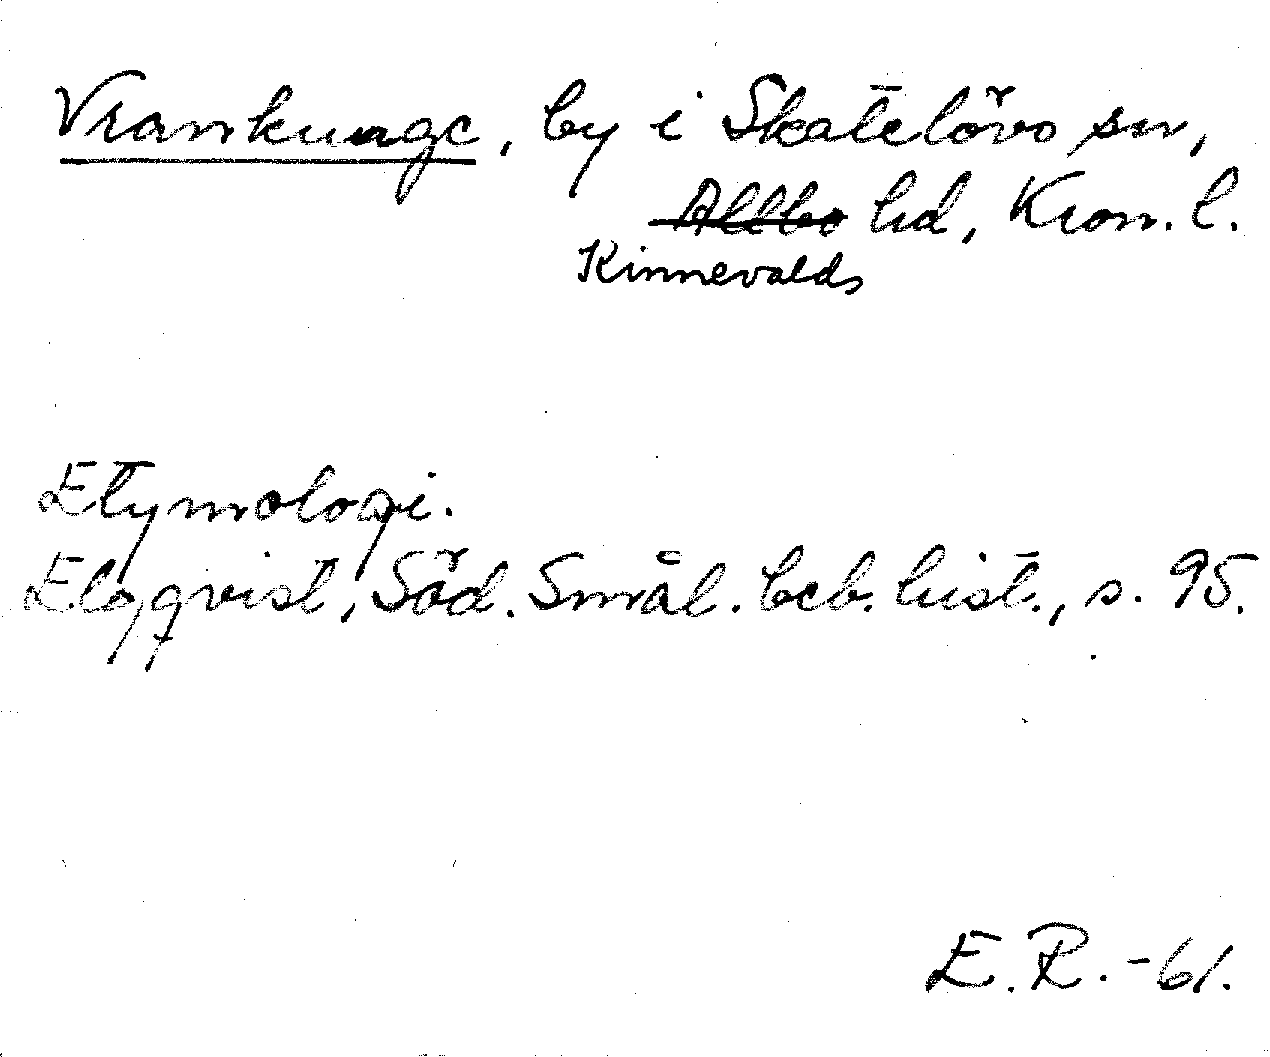 Vrankunge, by i Skatelövs sn,
Allbo hd, Kron. l.
Kinnevalds
Etymologi.
Elqqvist, Söd. Smål. beb. hist., s. 95.
E. R. -61.